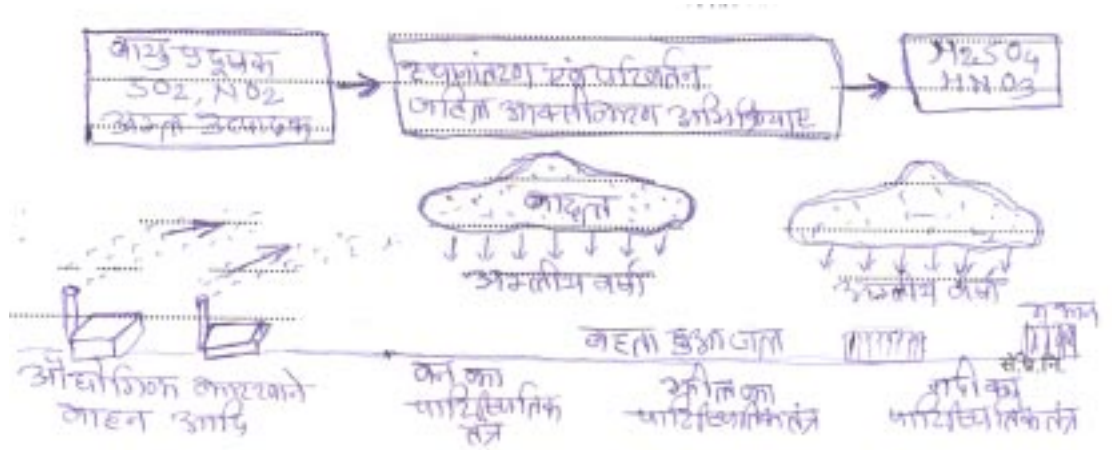 वायु प्रदूषक
SO2, NO2
अम्ल उत्पादक
स्थानांतरण एवं परिवर्तन
जटिल आक्सीकरण अभिक्रियाएं
H2SO4
HNO3
बादल
अम्लीय वर्षा
अम्लीय वर्षा
मकान
बहता हुआ जल
औद्योगिक कारखाने
वाहन आदि
वन का
पारिस्थितिक
तंत्र
झील का
पारिस्थितिक तंत्र
नदी का
पारिस्थितिक तंत्र